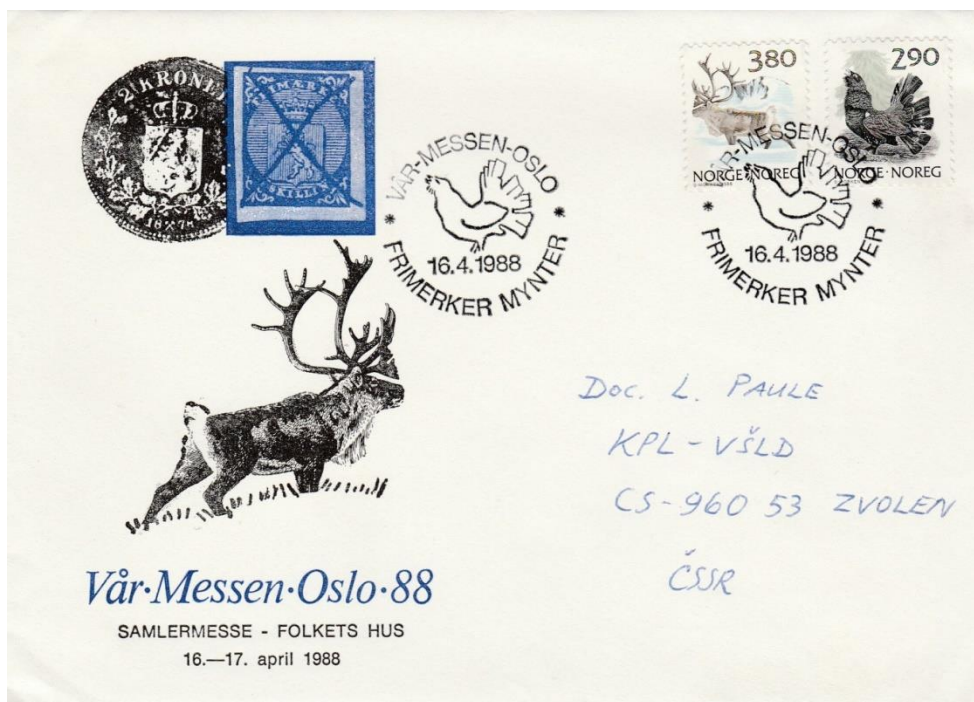 2 KRONER
1878
FRIMÆRKE
SKILLING
VÅR-MESSEN-OSLO
16.4.1988
* FRIMERKER MYNTER *
380
NORGE·NOREG
290
NORGE·NOREG
VÅR-MESSEN-OSLO
16.4.1988
* FRIMERKER MYNTER *
Doc. L. PAULE
KPL - VŠLD
CS-960 53 ZVOLEN
ČSSR
Vår·Messen·Oslo·88
SAMLERMESSE - FOLKETS HUS
16.—17. april 1988